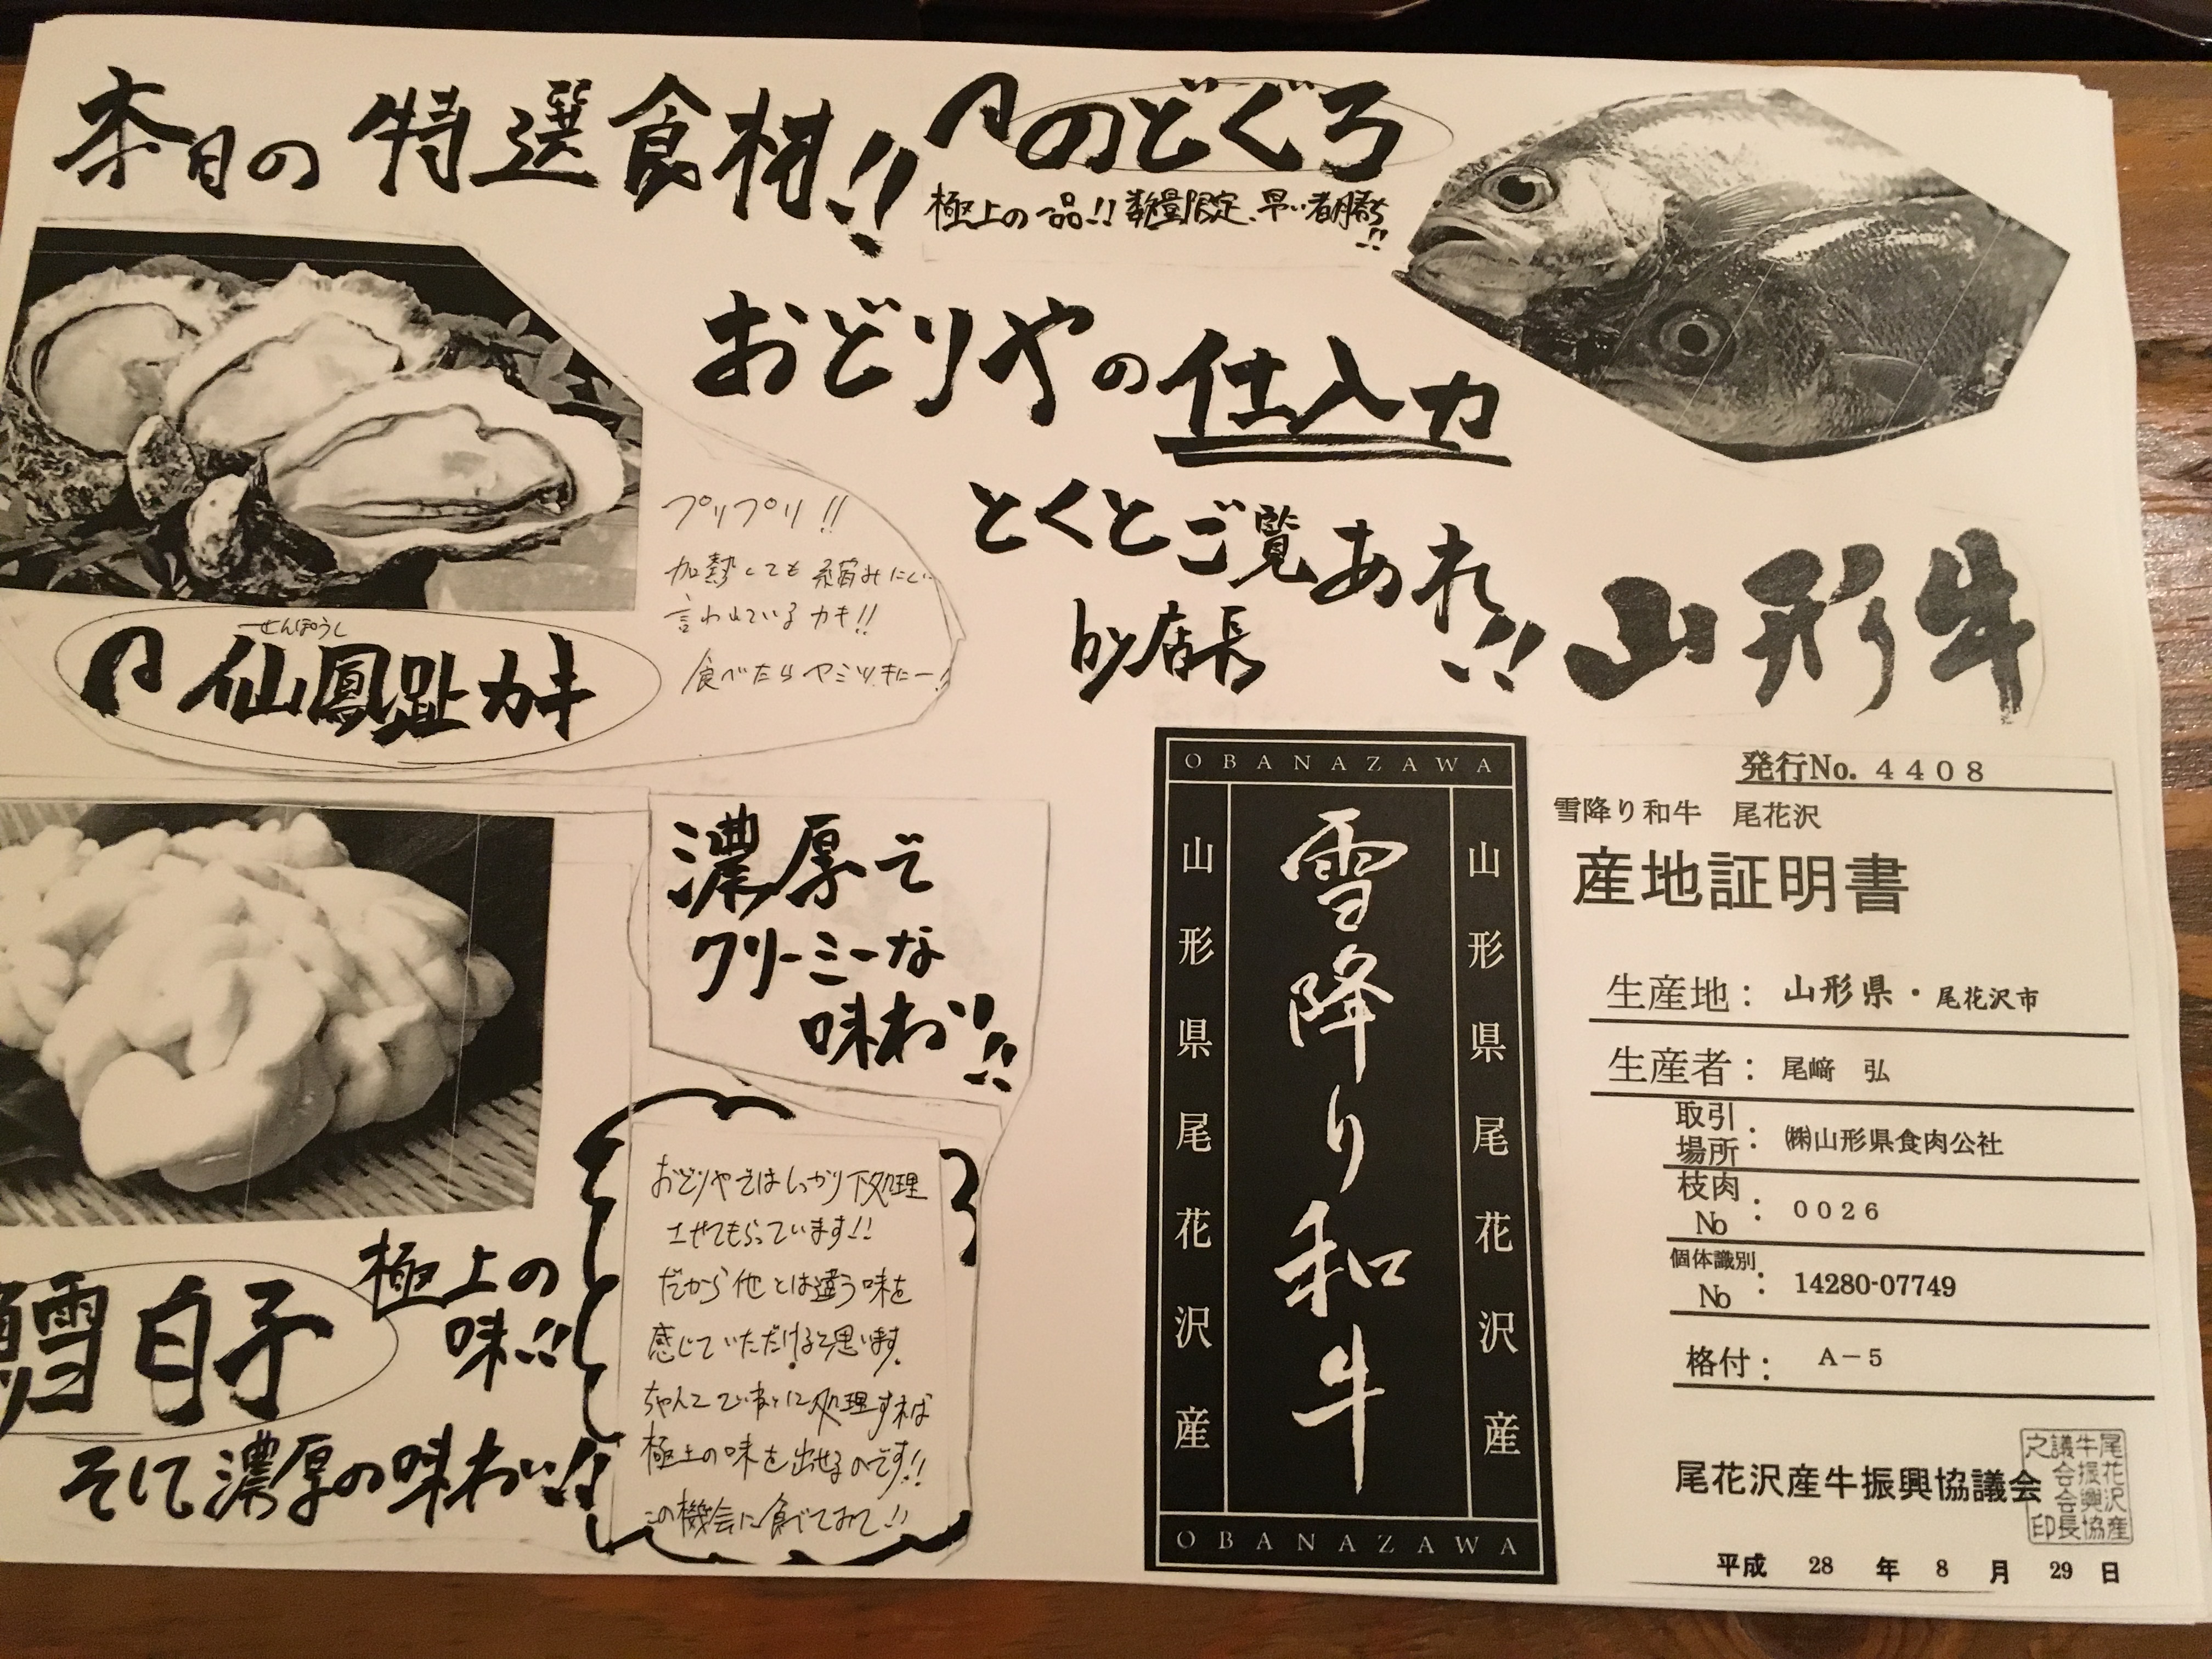 本日の特選食材!!
のどぐろ
極上の一品!! 数量限定、早い者勝ち!!
おどりやの仕入力
とくとご覧あれ!!
by店長
プリプリ!!
加熱しても縮みにくい
言われているカキ!!
食べたらヤミツキにー!
せんぽうし
仙鳳趾カキ
濃厚で
クリーミーな
味わい!!
鱈白子
極上の
味!!
そして濃厚の味わい!!
おどりやそはしっかり下処理
させてもらっています!!
だから他とは違う味を
感じていただけると思います。
ちゃんとていねいに処理すれば
極上の味を出せるのです!!
この機会に食べてみて!!
山形牛
OBANAZAWA
山形県尾花沢産
雪降り和牛
山形県尾花沢産
OBANAZAWA
発行No. 4408
雪降り和牛 尾花沢
産地証明書
生産地: 山形県・尾花沢市
生産者: 尾﨑 弘
取引場所: ㈱山形県食肉公社
枝肉No: 0026
個体識別No: 14280-07749
格付: A-5
尾花沢産牛振興協議会
尾花沢産牛振興協議会会長之印
平成 28 年 8 月 29 日